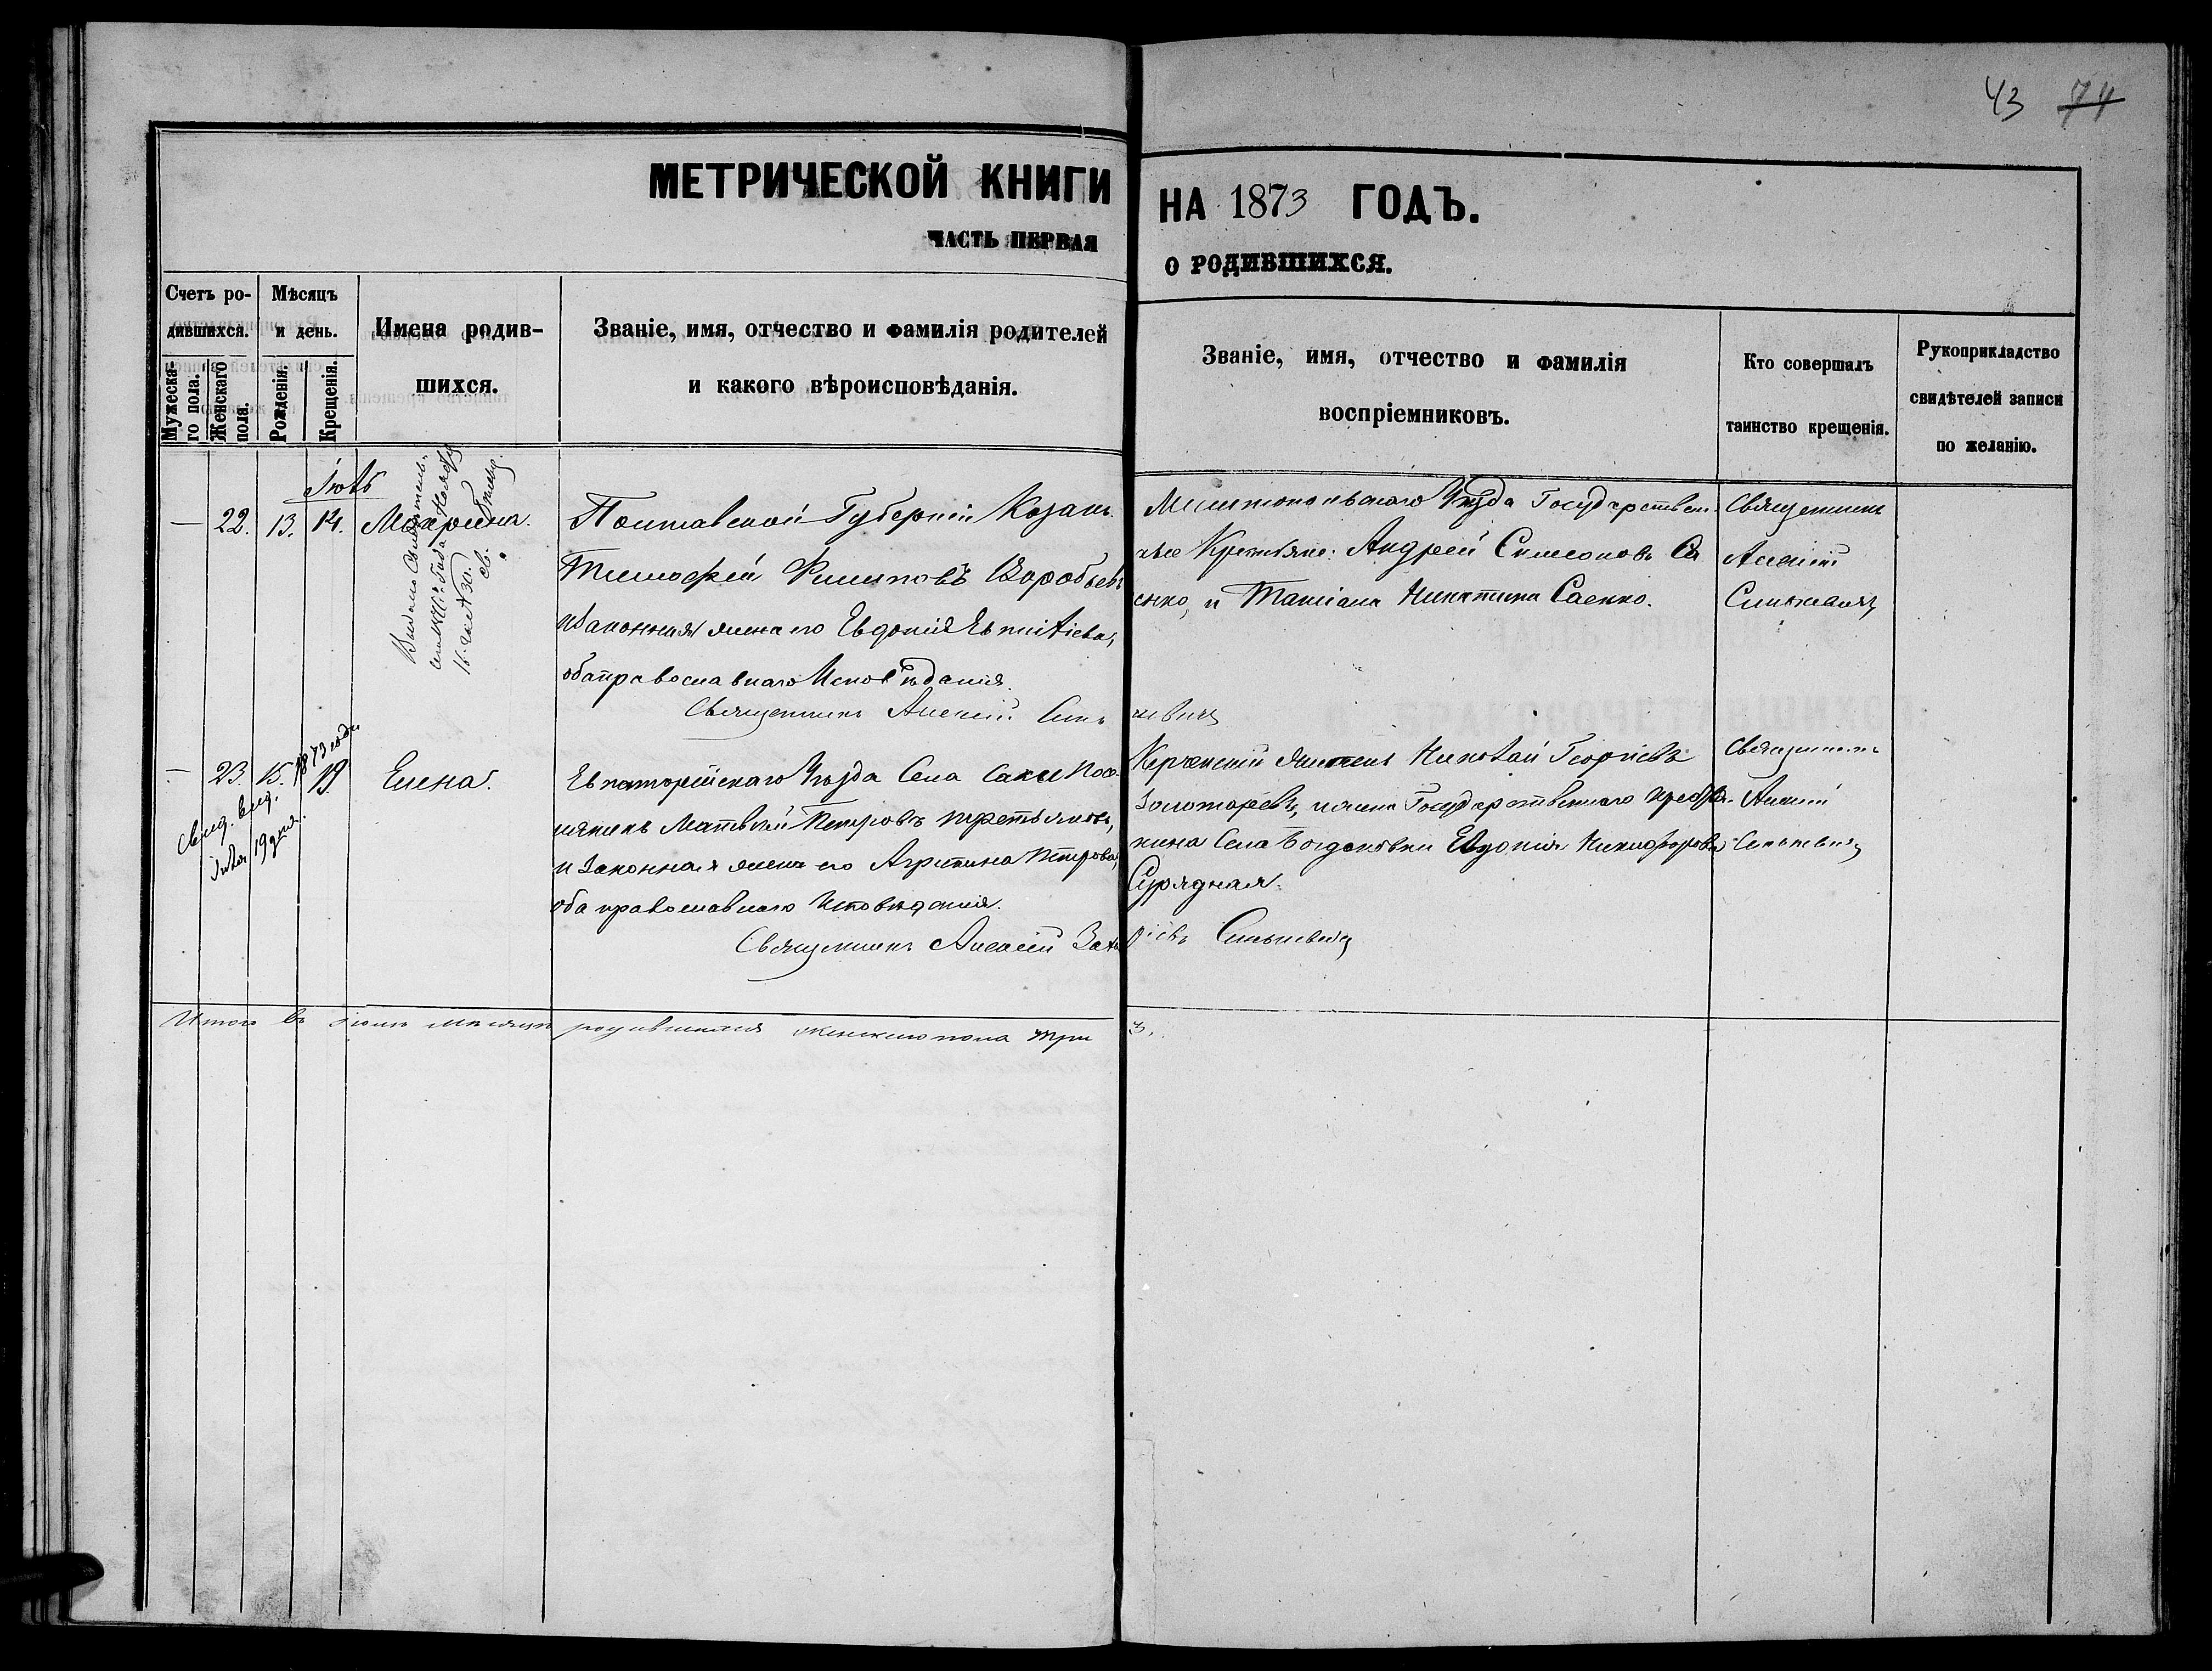 43 74
МЕТРИЧЕСКОЙ КНИГИ НА 1873 ГОДЪ.
ЧАСТЬ ПЕРВАЯ О РОДИВШИХСЯ.
Счетъ родившихся.
Мужескаго пола.
Женскаго пола.
Мѣсяцъ и день.
Рожденія.
Крещенія.
Имена родившихся.
Званіе, имя, отчество и фамилія родителей
и какого вѣроисповѣданія.
Званіе, имя, отчество и фамилія
воспріемниковъ.
Кто совершалъ
таинство крещенія.
Рукоприкладство
свидѣтелей записи
по желанію.
— 22. 13. 14. Макрина.
Полтавской Губерніи Козакъ
Тимофей Филиповъ Воробьевъ
и законная жена его Евдокія
оба православнаго Исповѣданія.
Священникъ Алексій Синькевичъ
Мелитопольскаго Уѣзда Государствен
ные Крестьяне: Андрей Симеоновъ Са
енко, и Татіана Никитина Саенко.
Священникъ
Алексій
Синькевичъ
— 23. 15. 19. Елена.
1873 года
Евпаторійскаго Уѣзда Села Саки Посе
лянинъ Матвѣй Петровъ Третьяковъ,
и Законная жена его Агрипина Петрова,
оба православнаго Исповѣданія.
Священникъ Алексій Синькевичъ
Керченскій Николай Георгіевъ
Золотаревъ, и жена Государственнаго
Села Богдановки Евдокія Никифорова
Священникъ
Алексій
Синькевичъ
19 дня.
Итого въ мѣсяцѣ родившихся женскаго пола три 3.